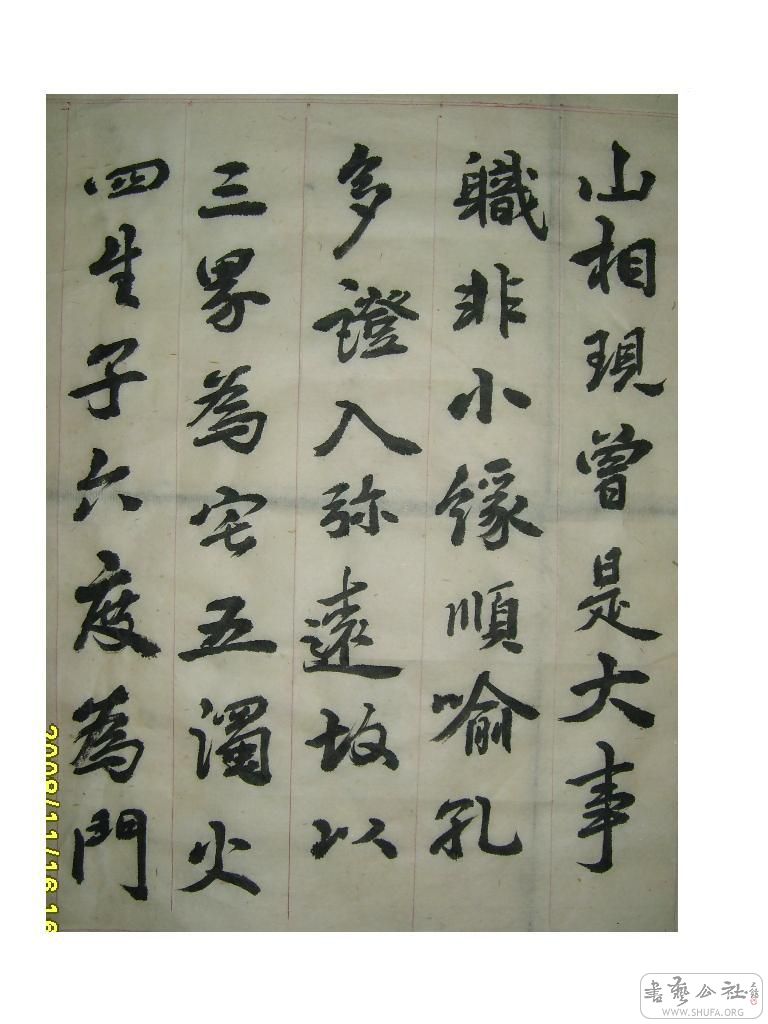 山相現曾是大事
職非小緣順喻孔
多證入弥遠故以
三界為宅五濁火
四生子六度為門
2008/11/16 16
書藝公社
WWW.SHUFA.ORG